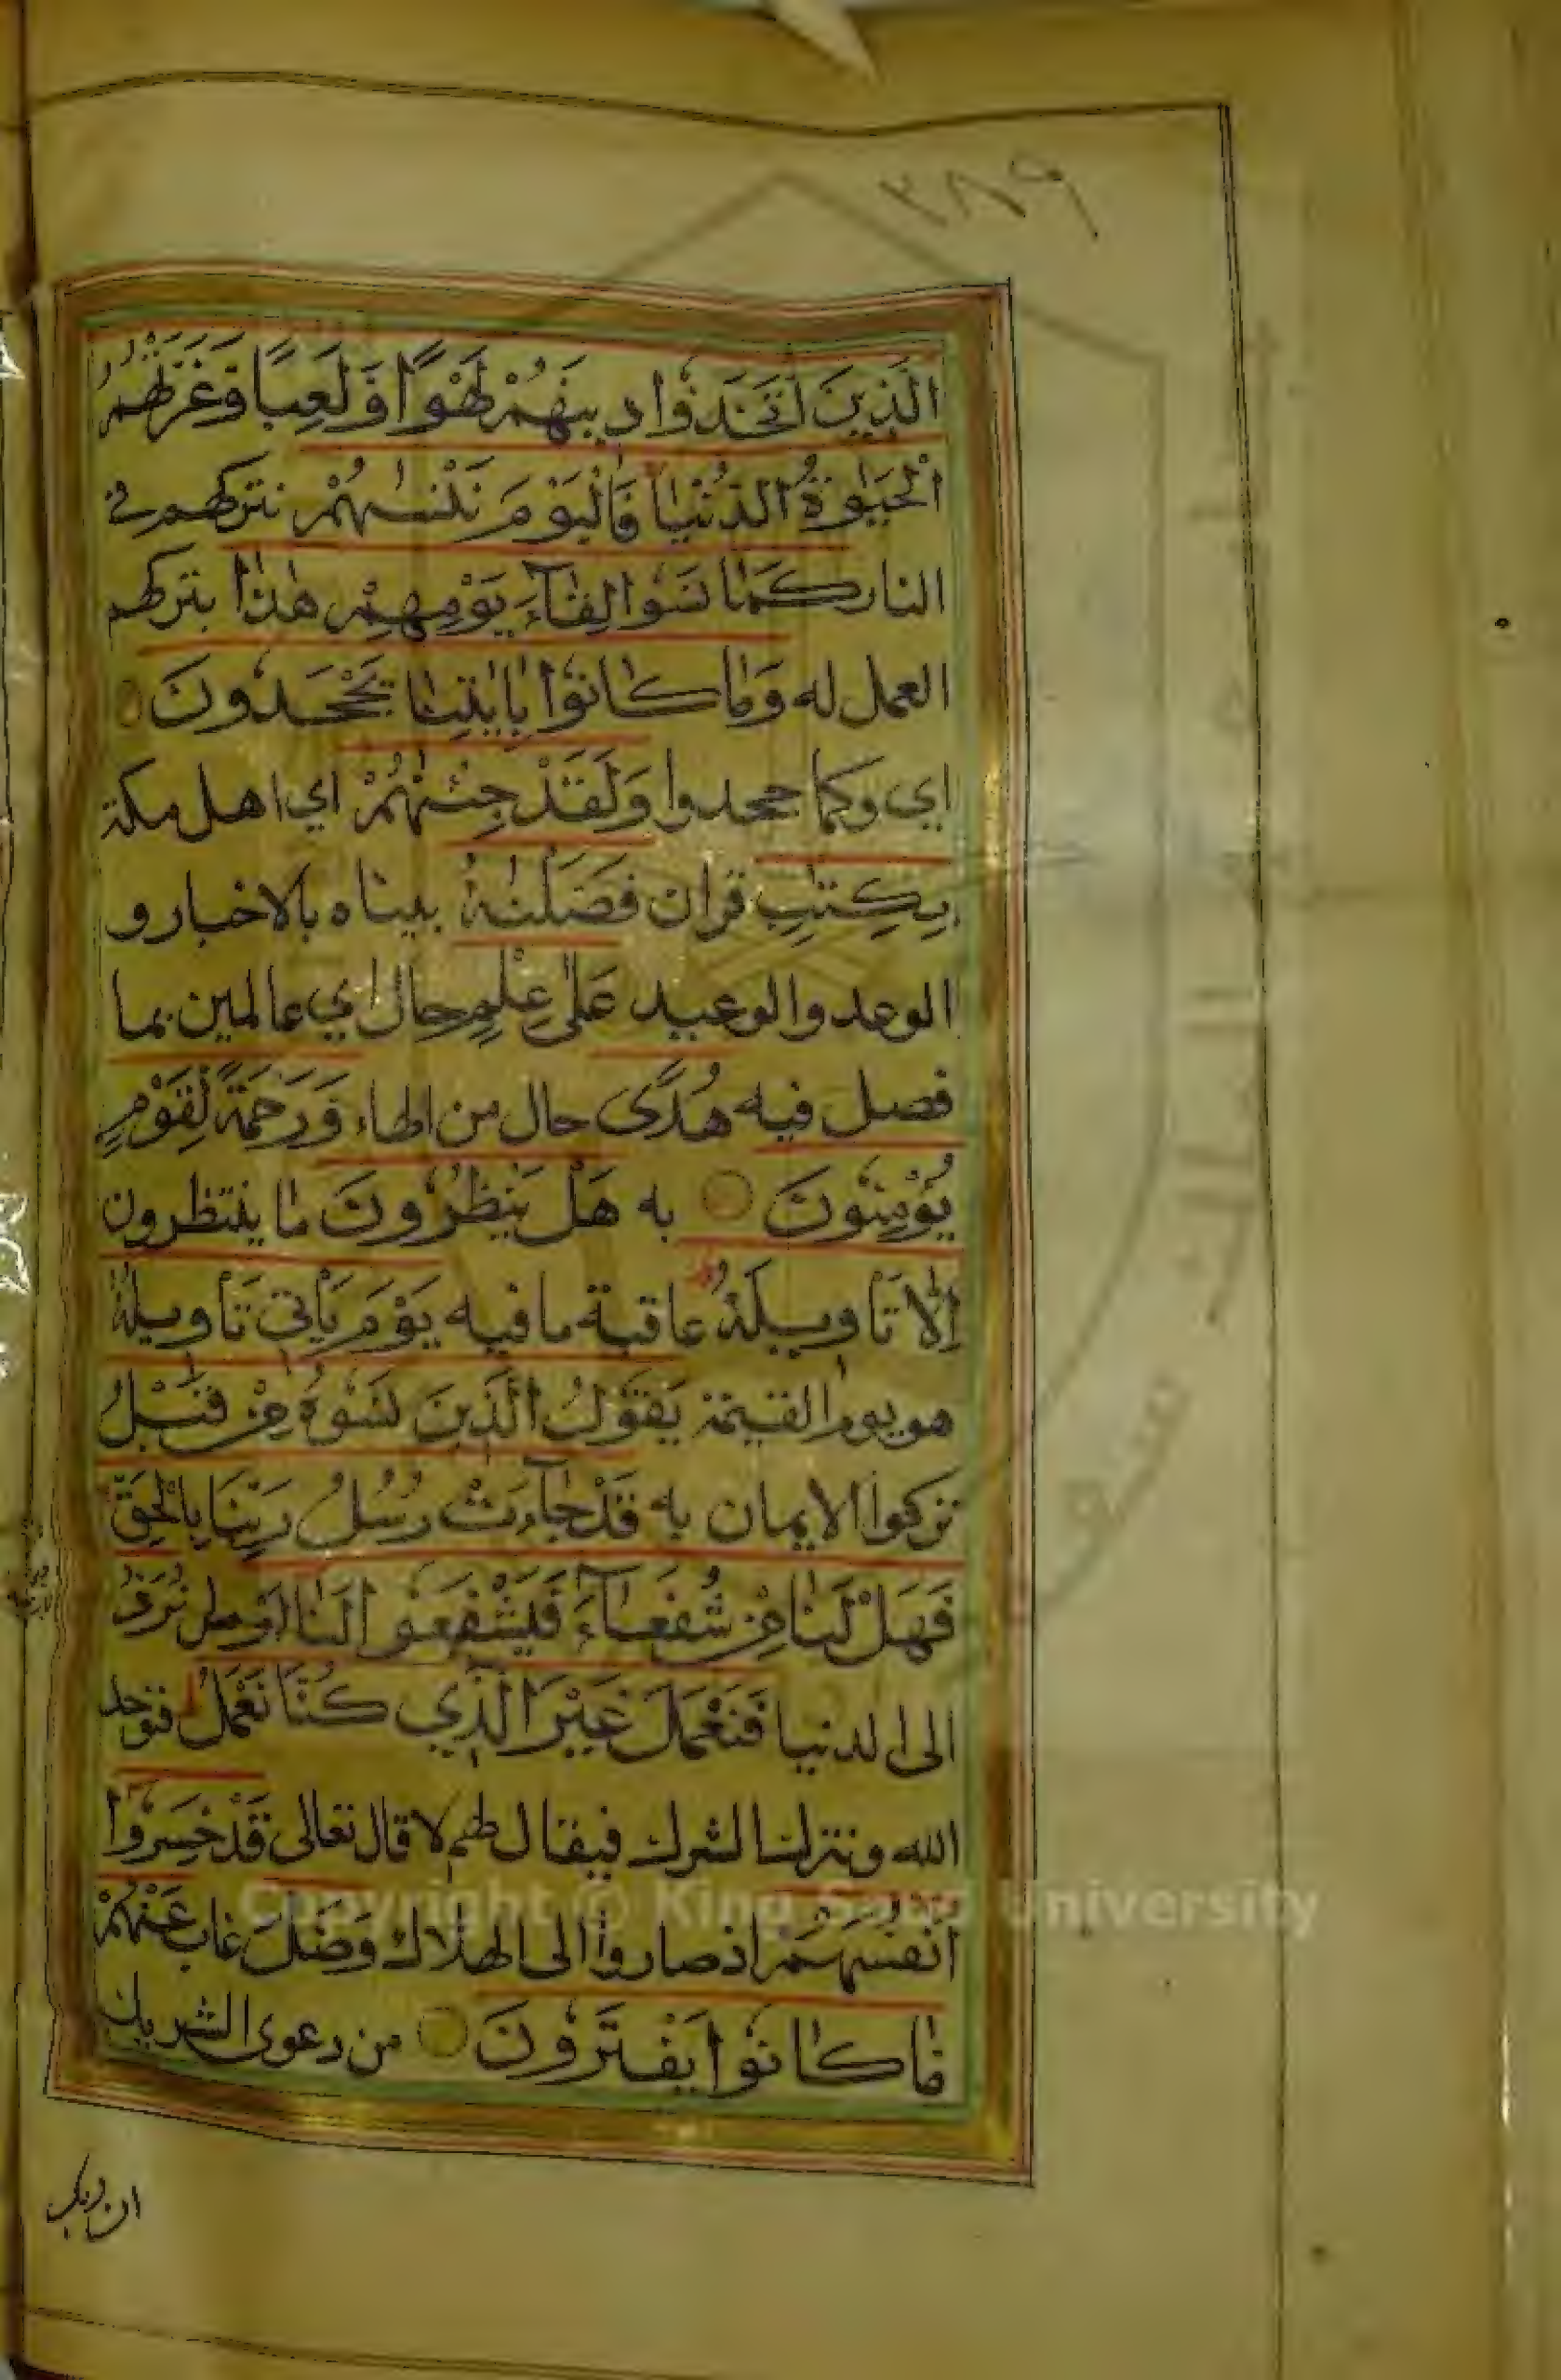 ٣٨٩
الَّذِينَ اتَّخَذُوا دِينَهُمْ لَهْوًا وَلَعِبًا وَغَرَّتْهُمُ
الْحَيٰوةُ الدُّنْيَا فَالْيَوْمَ نَنْسٰهُمْ نتركهم في
النار كَمَا نَسُوا لِقَآءَ يَوْمِهِمْ هٰذَا بتركهم
العمل له وَمَا كَانُوا بِاٰيٰتِنَا يَجْحَدُونَ
اي وكما جحدوا وَلَقَدْ جِئْنٰهُمْ اي اهل مكة
بِكِتٰبٍ قران فَصَّلْنٰهُ بيناه بالاخبار و
الوعد والوعيد عَلٰى عِلْمٍ حال اي عالمين بما
فصل فيه هُدًى حال من الهاء وَرَحْمَةً لِقَوْمٍ
يُؤْمِنُونَ به هَلْ يَنْظُرُونَ ما ينتظرون
اِلَّا تَأْوِيلَهُ عاقبة ما فيه يَوْمَ يَأْتِي تَأْوِيلُهُ
هو يوم القيمة يَقُولُ الَّذِينَ نَسُوهُ مِنْ قَبْلُ
تركوا الايمان به قَدْ جَآءَتْ رُسُلُ رَبِّنَا بِالْحَقِّ
فَهَلْ لَنَا مِنْ شُفَعَآءَ فَيَشْفَعُوا لَنَا اَوْ هل نُرَدُّ
الى الدنيا فَنَعْمَلَ غَيْرَ الَّذِي كُنَّا نَعْمَلُ فنوحد
الله ونترك الشرك فيقال لهم لا قال تعالى قَدْ خَسِرُوا
اَنْفُسَهُمْ اذ صاروا الى الهلاك وَضَلَّ غاب عَنْهُمْ
مَا كَانُوا يَفْتَرُونَ من دعوى الشريك
ان ربكم
Copyright © King Saud University